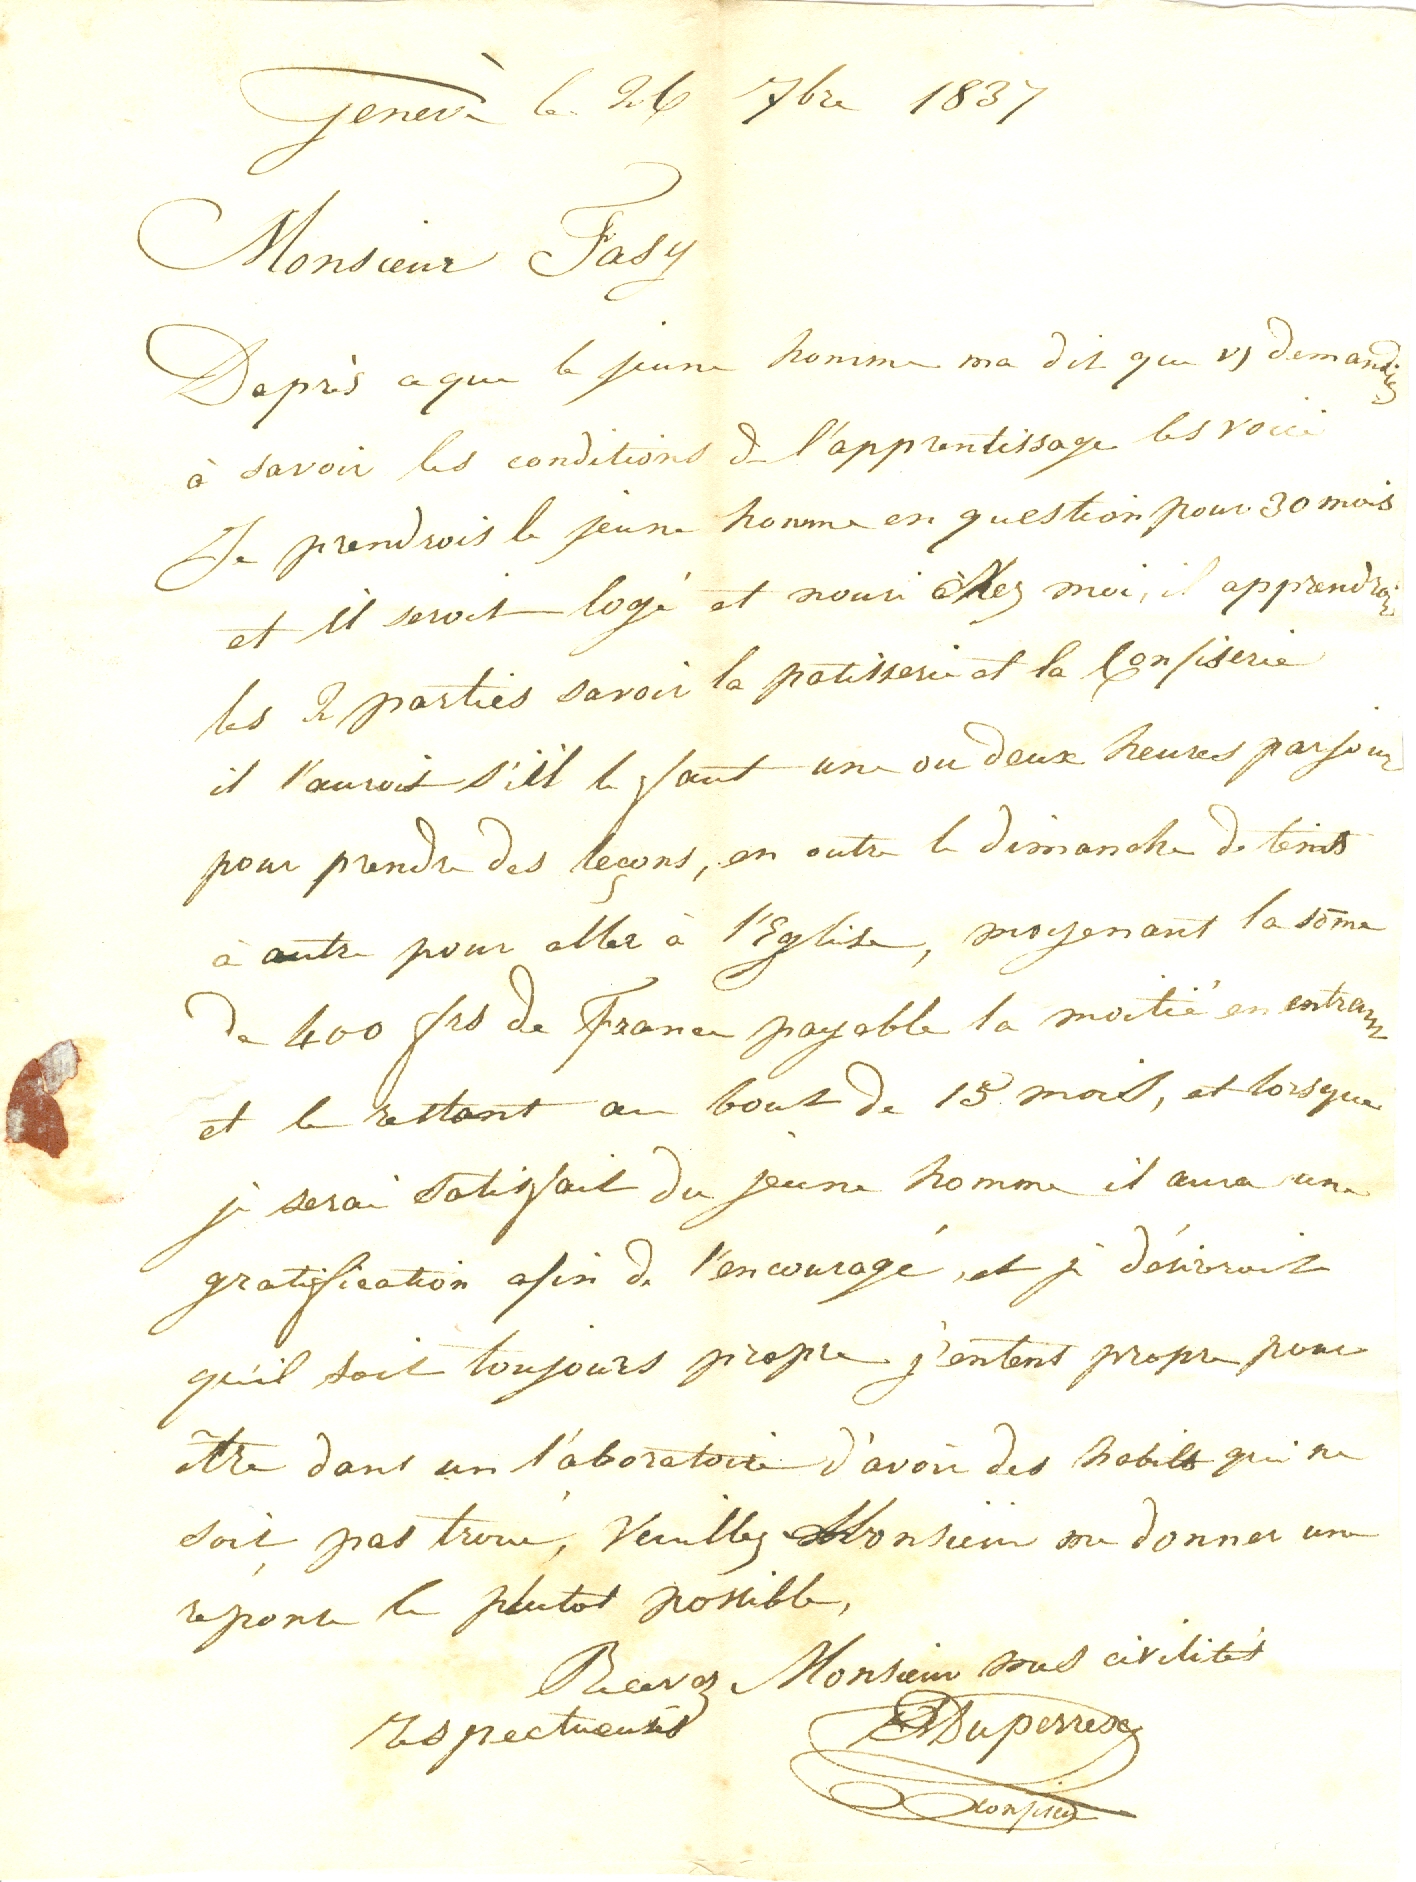 Genève le 26 7bre 1837
Monsieur Fasy
Daprès ce que le jeune homme ma dit que vs demandiez
à savoir les conditions de l'apprentissage les voici
Je prendrois le jeune homme en question pour 30 mois
et il seroit logé et nouri chez moi, il apprendroit
les 2 parties savoir la patisserie et la Confiserie
il l'auroit s'il le faut une ou deux heures par jour
pour prendre des leçons, en outre le dimanche de tems
à autre pour aller à l'Eglise, moyenant la sōme
de 400 frs de France payable la moitié en entrant
et le restant au bout de 15 mois, et lorsque
je serai satisfait du jeune homme il aura une
gratification afin de l'encouragé, et je désireroit
qu'il soit toujours propre j'entent propre pour
être dans un l'aboratoire d'avoir des habits qui ne
soit pas troué, Veuillez Monsieur me donner une
réponse le plutot possible,
Recevez Monsieur mes civilités
respectueuses
Duperrex
confiseur